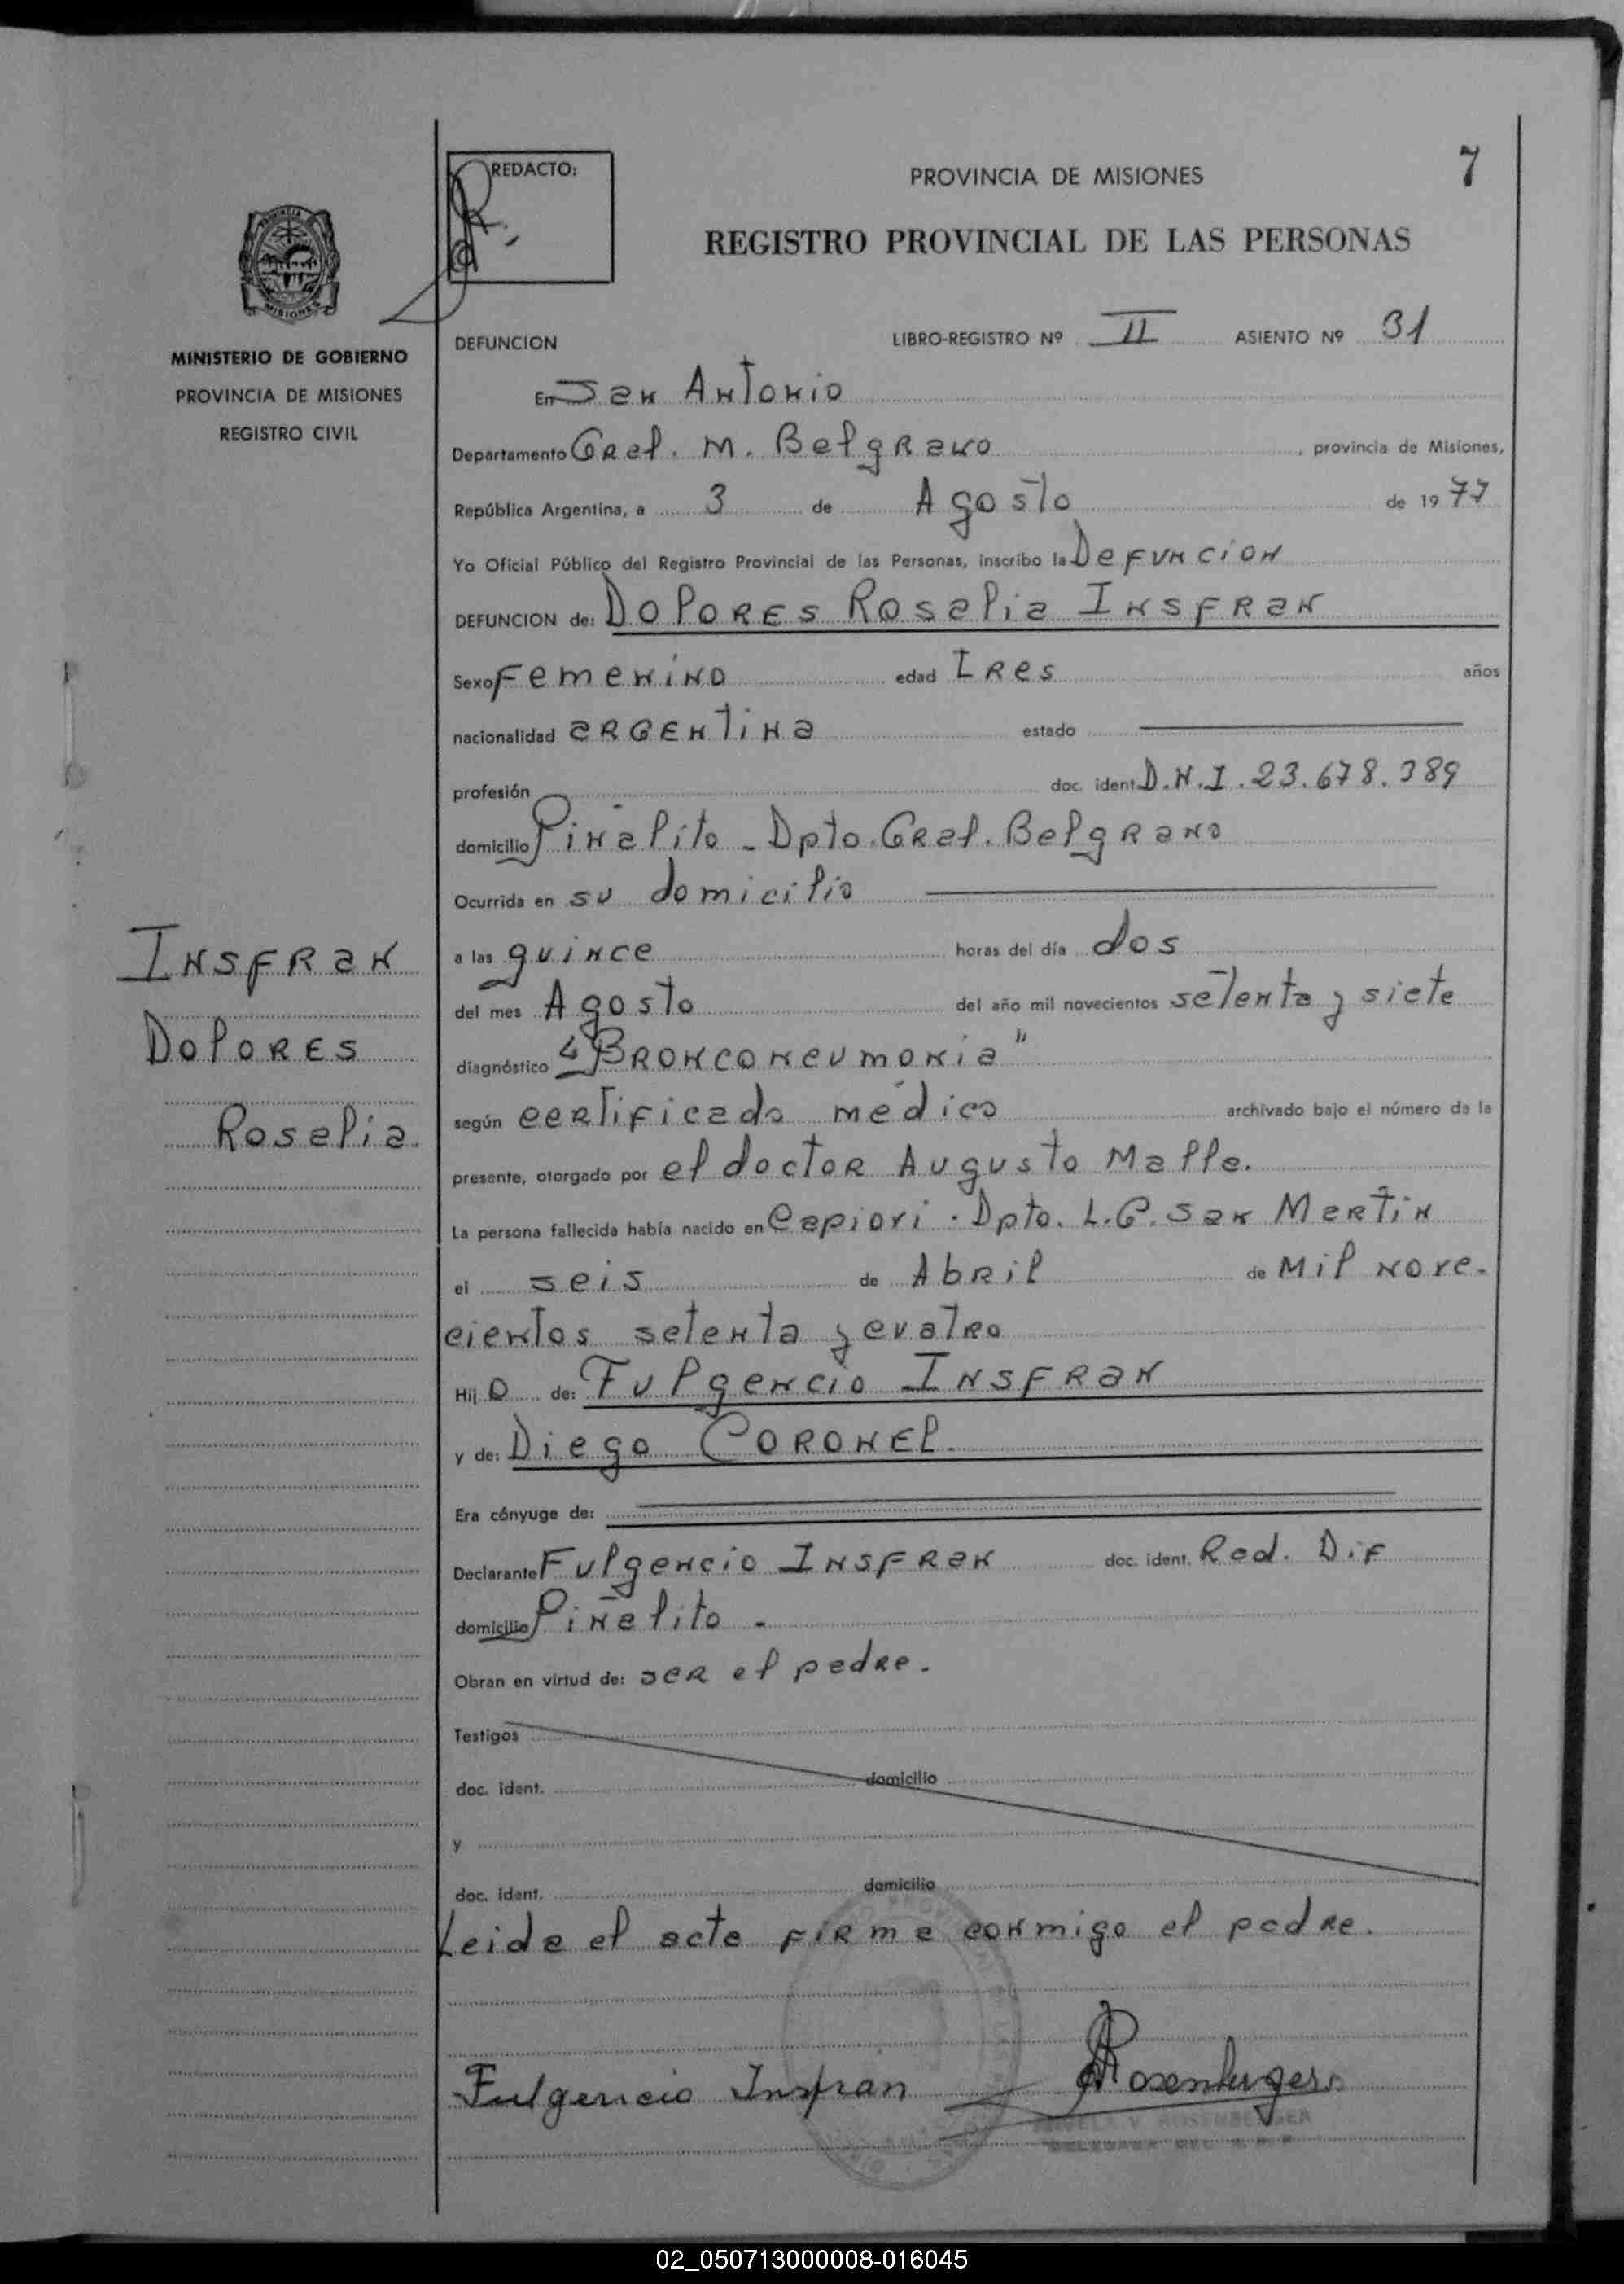 7
REDACTO:
PROVINCIA DE MISIONES
REGISTRO PROVINCIAL DE LAS PERSONAS
MISIONES
MINISTERIO DE GOBIERNO
PROVINCIA DE MISIONES
REGISTRO CIVIL
DEFUNCION LIBRO-REGISTRO Nº II ASIENTO Nº 31
En San Antonio
Departamento Gral. M. Belgrano, provincia de Misiones,
República Argentina, a 3 de Agosto de 1977
Yo Oficial Público del Registro Provincial de las Personas, inscribo la Defuncion
DEFUNCION de: Dolores Rosalia Insfran
Sexo Femenino edad Tres años
nacionalidad argentina estado
profesión doc. ident. D.N.I. 23.678.389
domicilio Piñalito - Dpto. Gral. Belgrano
Ocurrida en su domicilio
a las quince horas del día dos
del mes Agosto del año mil novecientos setenta y siete
diagnóstico "Bronconeumonia"
según certificado médico archivado bajo el número de la
presente, otorgado por el doctor Augusto Malle.
La persona fallecida había nacido en Capiovi - Dpto. L.G. San Martín
el seis de Abril de Mil nove-
cientos setenta y cuatro
Hij a de: Fulgencio Insfran
y de: Diega Coronel.
Era cónyuge de:
Declarante Fulgencio Insfran doc. ident. Rad. Dif
domicilio Piñalito -
Obran en virtud de: ser el padre.
Testigos
doc. ident. domicilio
y
doc. ident. domicilio
Leida el acta firma conmigo el padre.
Fulgencio Insfran Rosenberger
V. ROSENBERGER
Insfran
Dolores
Rosalia.
02_050713000008-016045